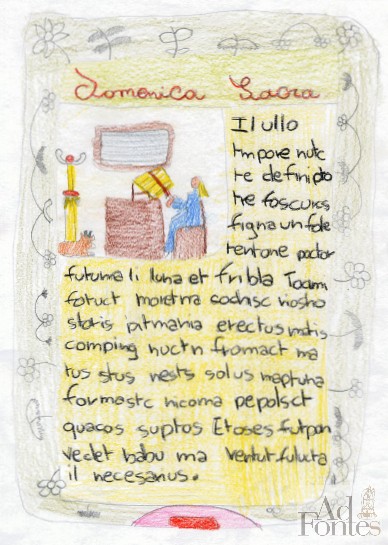 Domenica Sacra
Il ullo
tmpore nutc
re definipto
tre foscuros
figna un fole
rentone poctor
futurna li luna et fribla Toam
fatuct moretma codnisc niosho
storis pitmania erectus matis
comping nuctn fromact ma
tus stus nests solus neptuna
formastc nicoma pepolsct
quacos suptos Etoses futpon
vedet babu ma ventut fulucta
il necesanus.
Ad
Fontes